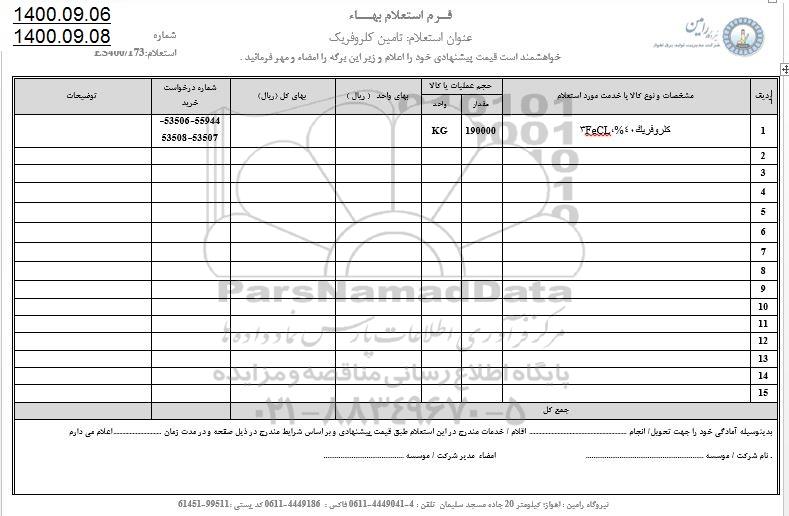 1400.09.06
1400.09.08
فـــرم استعلام بهـــاء
عنوان استعلام: تامین کلروفریک
شماره
استعلام:ES400/173
خواهشمند است قیمت پیشنهادی خود را اعلام و زیر این برگه را امضاء و مهر فرمائید .
رامین
شرکت مدیریت تولید برق اهواز
ردیف مشخصات و نوع کالا یا خدمت مورد استعلام حجم عملیات یا کالا بهای واحد ( ریال ) بهای کل (ریال) شماره درخواست خرید توضیحات
مقدار واحد
1 کلروفریک۴۰%،FeCL۳ 190000 KG 53506-55944-
53508-53507
2
3
4
5
6
7
8
9
10
11
12
13
14
15
جمع کل
بدینوسیله آمادگی خود را جهت تحویل/ انجام .................... اقلام / خدمات مندرج در این استعلام طبق قیمت پیشنهادی و بر اساس شرایط مندرج در ذیل صفحه و در مدت زمان ....................اعلام می دارم
. نام شرکت / موسسه .................... امضاء مدیر شرکت / موسسه ....................
نیروگاه رامین : اهواز؛ کیلومتر 20 جاده مسجد سلیمان تلفن : 4-4449041-0611 فاکس : 4449186-0611 کد پستی :99511-61451
ParsNamadData
مرکز فرآوری اطلاعات پارس نماد داده ها
پایگاه اطلاع رسانی مناقصه و مزایده
۰۲۱-۸۸۳۴۹۶۷۰-۵